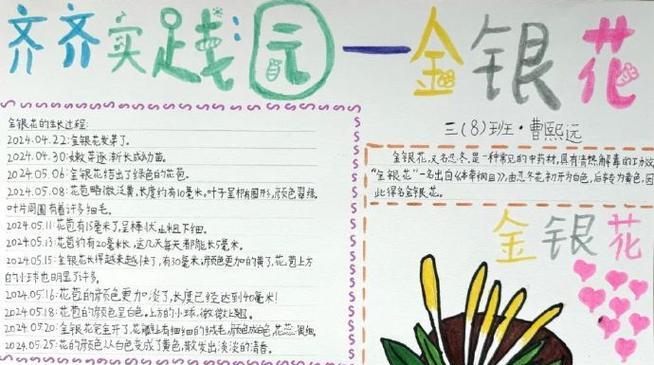 齐齐实践园—金银花
三(8)班·曹熙远
金银花的生长过程:
2024.04.22:金银花发芽了。
2024.04.30:嫩芽逐渐长成幼苗。
2024.05.06:金银花结出了绿色的花苞。
2024.05.08:花苞略微泛黄,长度约有10毫米。叶子呈椭圆形,颜色翠绿,
叶片周围有着许多细毛。
2024.05.11:花苞有15毫米了,呈棒状,上粗下细。
2024.05.13:花苞约有20毫米长,这几天每天都能长5毫米。
2024.05.15:金银花长得越来越快了,有30毫米,颜色更加的黄了,花苞上方
的小球也明显了许多。
2024.05.16:花苞的颜色更加淡了,长度已经达到40毫米!
2024.05.18:花苞的颜色呈白色,上方的小球微微上翘。
2024.05.20:金银花完全开了,花瓣上有细细的绒毛,颜色成白色,花蕊很细。
2024.05.25:花的颜色从白色变成了黄色,散发出淡淡的清香。
金银花,又名忍冬,是一种常见的中药材,具有清热解毒的功效。
“金银花”一名出自《本草纲目》,由忍冬花初开为白色,后转为黄色,因
此得名金银花。
金银花